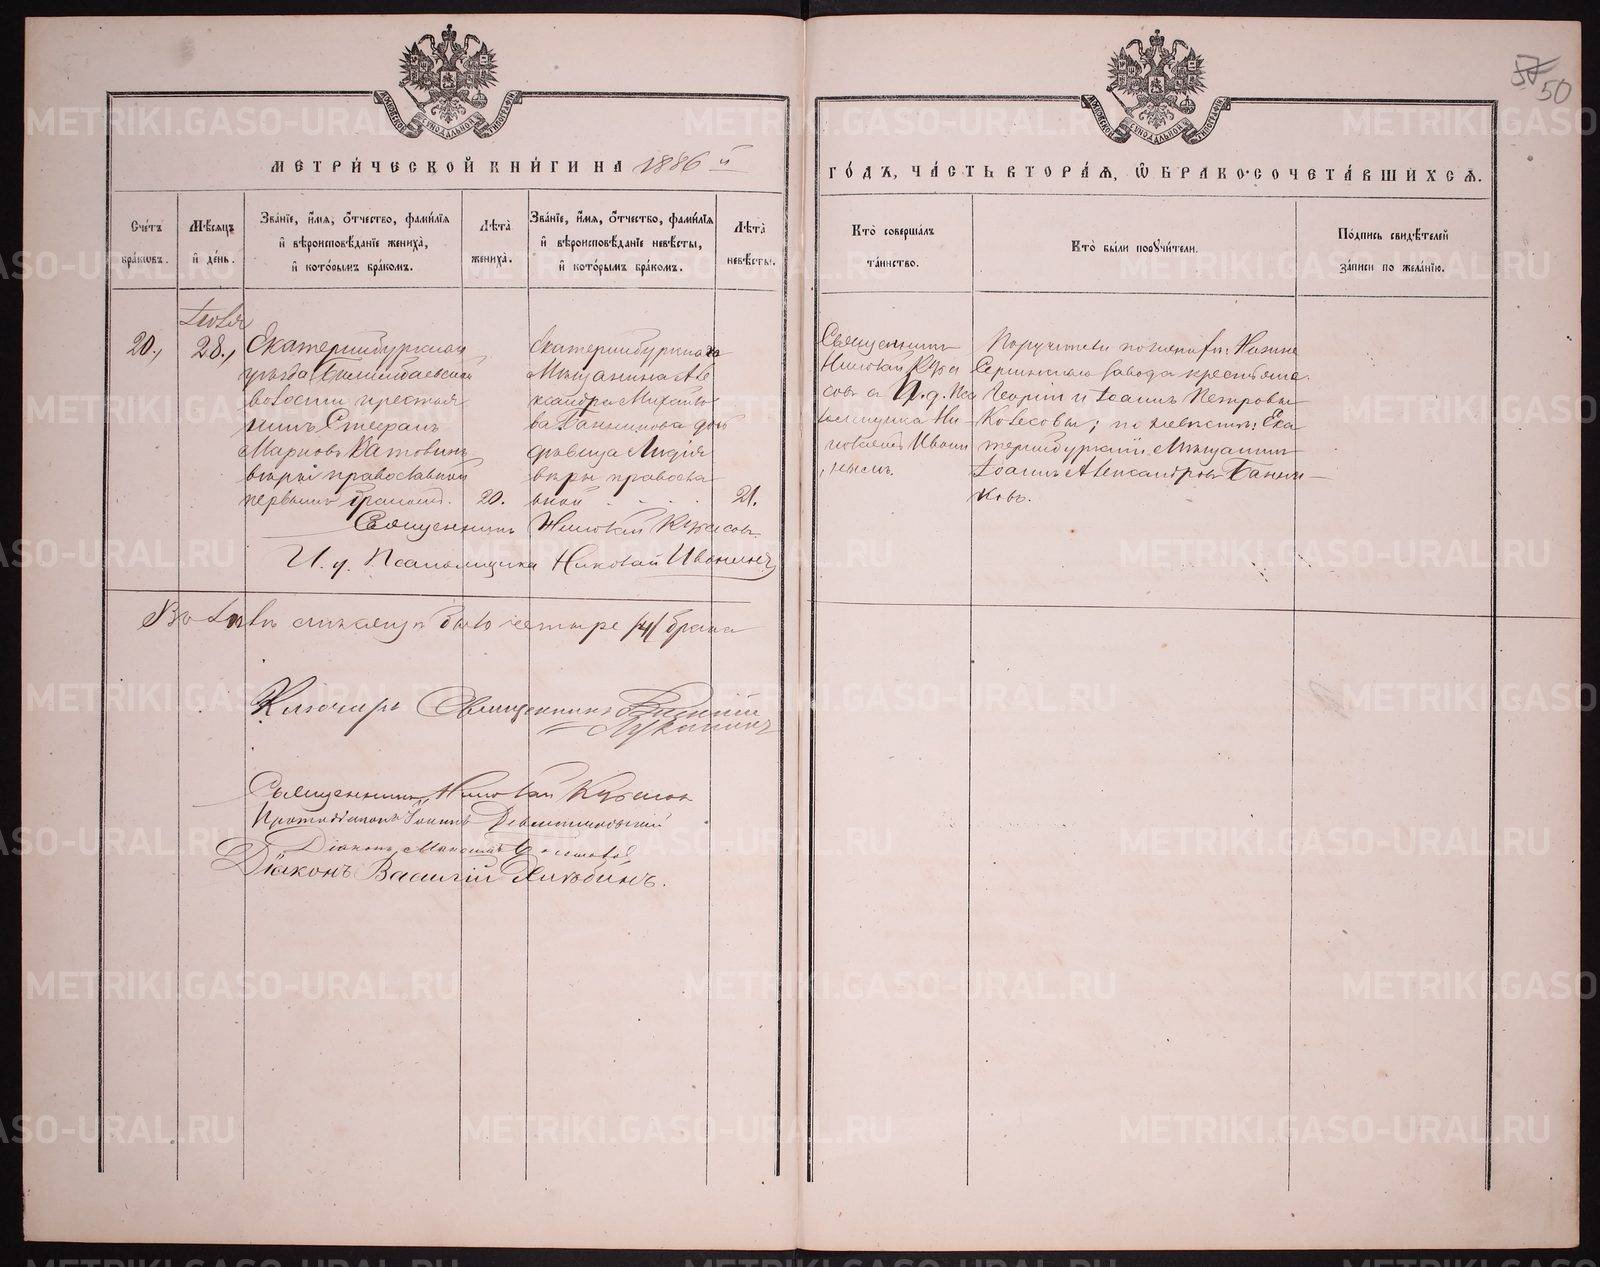 57 50
МЕТРИ́ЧЕСКОЙ КНИ́ГИ НА 1886 й
ГО́ДЪ, ЧА́СТЬ ВТОРА́Я, Ѡ БРАКО-СОЧЕТА́ВШИХСЯ.
Сче́тъ бра́кѡвъ.
Мѣ́сяцъ и де́нь.
Зва́нїе, и́мя, о́тчество, фами́лїя
и вѣроисповѣ́данїе жениха̀,
и кото́рымъ бра́комъ.
Лѣ́та жениха̀.
Зва́нїе, и́мя, о́тчество, фами́лїя
и вѣроисповѣ́данїе невѣ́сты,
и кото́рымъ бра́комъ.
Лѣ́та невѣ́сты.
Кто̀ соверша́лъ
та́инство.
Кто̀ бы́ли порꙋчи́тели.
По́дпись свидѣ́телей
за́писи по жела́нїю.
Іюля
20.,
28.,
Екатеринбургскаго
уѣзда
волости крестья
нинъ Стефанъ
Марковъ
вѣры православной
первымъ бракомъ.
20.
Екатеринбургскаго
Мѣщанина Але
ксандра Михайло
ва Банникова дочь
дѣвица Лидія
вѣры правосла
вной
21.
Священникъ
Николай
совъ и И. д. Пса
ломщика Ни
колаемъ Ивани
нымъ.
Поручители по женихѣ: Нижне
Сергинскаго завода крестьяне
Георгій и Іоаннъ Петровы
Колесовы; по невѣстѣ: Ека
теринбургскій Мѣщанинъ
Іоаннъ Александровъ Банни-
ковъ.
Священникъ Николай
И. д. Псаломщика Николай Иванинъ
Въ Іюлѣ мѣсяцѣ было четыре /4/ брака
Ключарь Священникъ
Священникъ Николай
Протодіаконъ Іоаннъ
Діаконъ
Діаконъ Василій